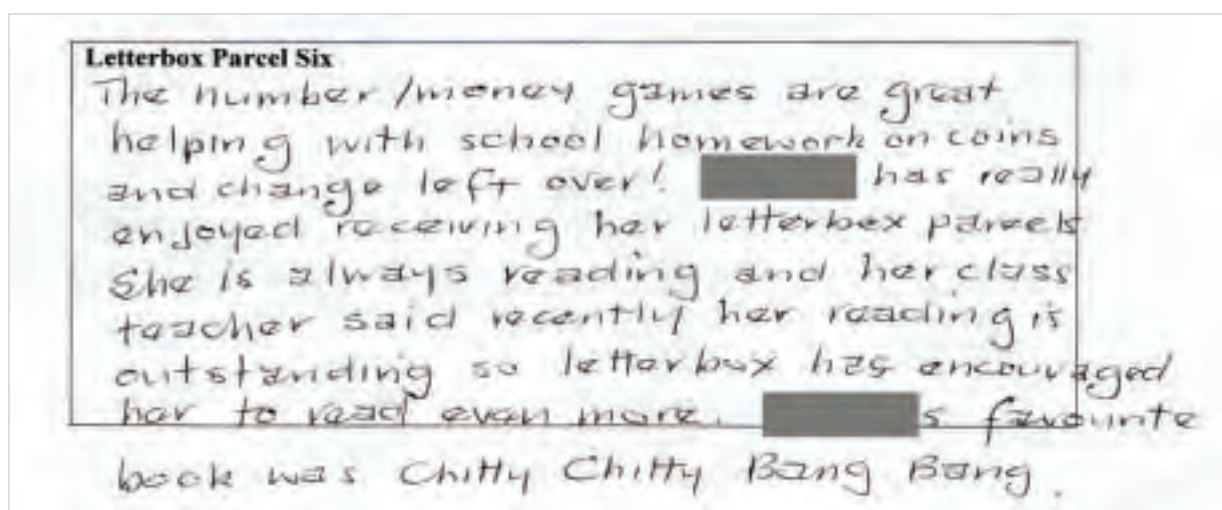 Letterbox Parcel Six
The number/money games are great
helping with school homework on coins
and change left over! has really
enjoyed receiving her letterbox parcels
She is always reading and her class
teacher said recently her reading is
outstanding so letterbox has encouraged
her to read even more. s favourite
book was Chitty Chitty Bang Bang.